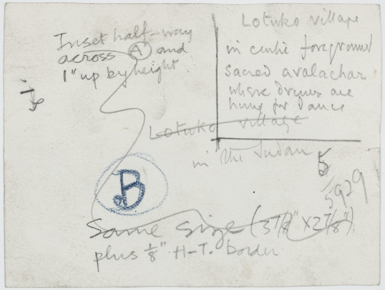 Inset half-way
across A and
1" up by height
Lotuko village
in centre foreground
sacred avalachar
where drums are
hung for dance
Lotuko village
in the Sudan
5
5929
B
Same size (3 7/8" x 2 7/8")
plus 1/8" H-T. border